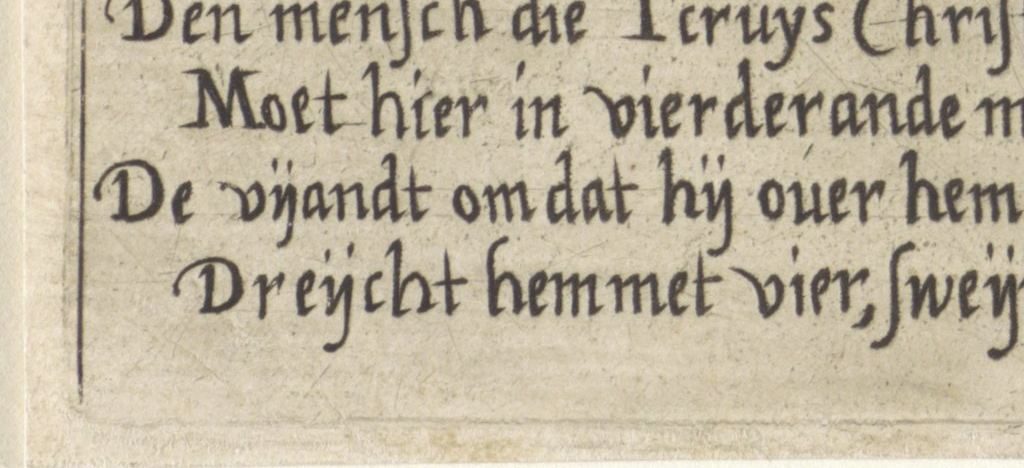 Den mensch die Tcruys Chris
Moet hier in vierderande m
De vijandt omdat hij ouer hem
Dreijcht hem met vier, sweij